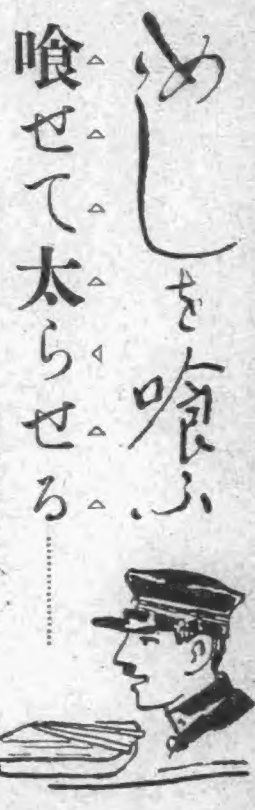 めしを喰ふ
喰せて太らせる………